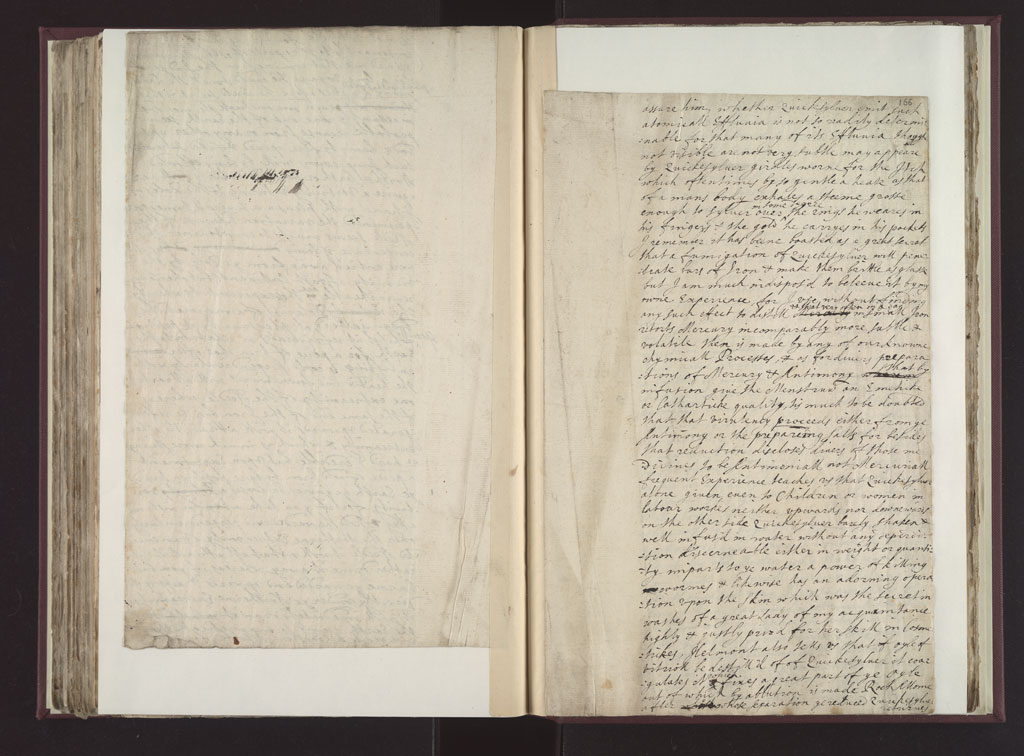 166
assure him, whether Quicksylver emit such
atomicall Effluvia is not so readily determi
:nable for that many of its Effluvia though
not visible are not very subtle may appeare
by Quicksylver girdles worne for the Itch
which oftentimes by so gentle a heate as that
of a mans body exhales a steeme grosse
enough to sylver over in some degree the rings he weares in
his fingers & the gold he carryes in his pockets
I remember it has beene boasted as a great secret
that a fumigation of Quicksylver will pene
:trate bars of Iron & make them brittle as glasse
but I am much indispos'd to beleeve it by my
owne Experience, for I use without finding
any such effect to distill & that very often in a day in small Iron
retorts Mercury incomparably more subtle &
volatile then is made by any of our knowne
chymicall Processes, & as for divers prepara
:tions of Mercury & Antimony that by
infusion give the Menstruū an Emeticke
or Catharticke quality, tis much to be doubted
that that virulency proceeds either from ye
Antimony or the prepareing salts for besides
that reduction discloses divers of those me
Dicines to be Antimoniall not Mercuriall
frequent Experience teaches us that Quicksylver
alone given even to Children or women in
labour workes neither upwards nor downwards
on the other side Quicksylver barely shaken &
well infus'd in water without any
:tion discerneable either in weight or quanti
:ty imparts to ye water a power of killing
wormes & likewise has an adorning opera
:tion upon the skin which was the secret in
washes of a great Lady of my acquaintance
highly & justly priz'd for her skill in Cosme
:tickes, Helmont also tels us that if oyle of
vitrioll be destill'd of of Quicksylver it coa
:gulates it & fixes a great part of ye oyle
out of which by ablution is made Roch Allome
after whose separation ye reduced Quicksylver
returnes